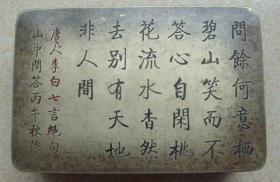 問餘何意栖
碧山笑而不
答心自閑桃
花流水杳然
去别有天地
非人間
唐人李白七言絶句
山中問答丙午秋作